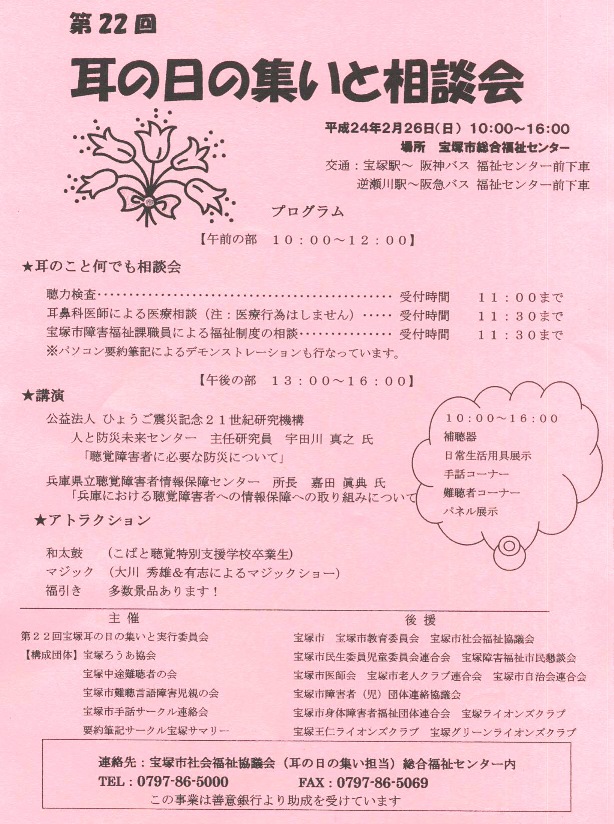 第22回
耳の日の集いと相談会
平成24年2月26日(日) 10:00～16:00
場所 宝塚市総合福祉センター
交通：宝塚駅～ 阪神バス 福祉センター前下車
逆瀬川駅～阪急バス 福祉センター前下車
プログラム
【午前の部 １０：００～１２：００】
★耳のこと何でも相談会
聴力検査・・・・・・・・・・・・・・・・・・・・・・・・・・・・・・・・ 受付時間 １１：００まで
耳鼻科医師による医療相談（注：医療行為はしません）・・・・・ 受付時間 １１：３０まで
宝塚市障害福祉課職員による福祉制度の相談・・・・・・・・・・・・・・ 受付時間 １１：３０まで
※パソコン要約筆記によるデモンストレーションも行なっています。
【午後の部 １３：００～１６：００】
★講演
公益法人 ひょうご震災記念２１世紀研究機構
人と防災未来センター 主任研究員 宇田川 真之 氏
「聴覚障害者に必要な防災について」
兵庫県立聴覚障害者情報保障センター 所長 嘉田 眞典 氏
「兵庫における聴覚障害者への情報保障への取り組みについて
１０：００～１６：００
補聴器
日常生活用具展示
手話コーナー
難聴者コーナー
パネル展示
★アトラクション
和太鼓 （こばと聴覚特別支援学校卒業生）
マジック （大川 秀雄＆有志によるマジックショー）
福引き 多数景品あります！
主 催
第２２回宝塚耳の日の集いと実行委員会
【構成団体】宝塚ろうあ協会
宝塚中途難聴者の会
宝塚市難聴言語障害児親の会
宝塚市手話サークル連絡会
要約筆記サークル宝塚サマリー
後 援
宝塚市 宝塚市教育委員会 宝塚市社会福祉協議会
宝塚市民生委員児童委員会連合会 宝塚障害福祉市民懇談会
宝塚市医師会 宝塚市老人クラブ連合会 宝塚市自治会連合会
宝塚市障害者（児）団体連絡協議会
宝塚市身体障害者福祉団体連合会 宝塚ライオンズクラブ
宝塚王仁ライオンズクラブ 宝塚グリーンライオンズクラブ
連絡先：宝塚市社会福祉協議会（耳の日の集い担当）総合福祉センター内
TEL：0797-86-5000 FAX：0797-86-5069
この事業は善意銀行より助成を受けています